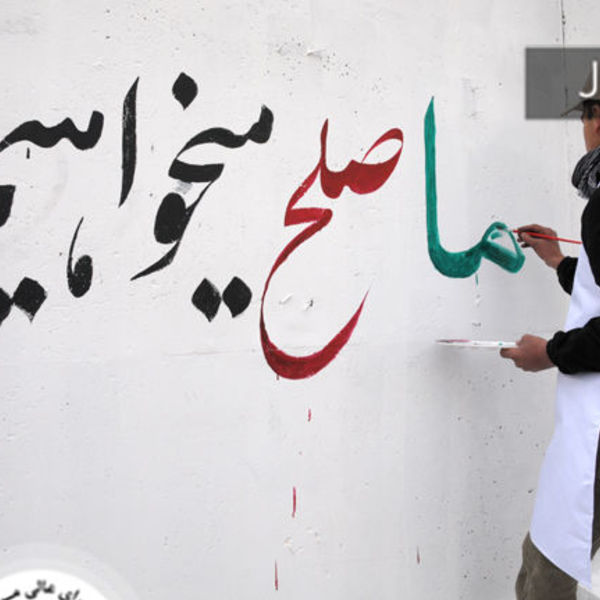 ما صلح میخواهیم
عالی